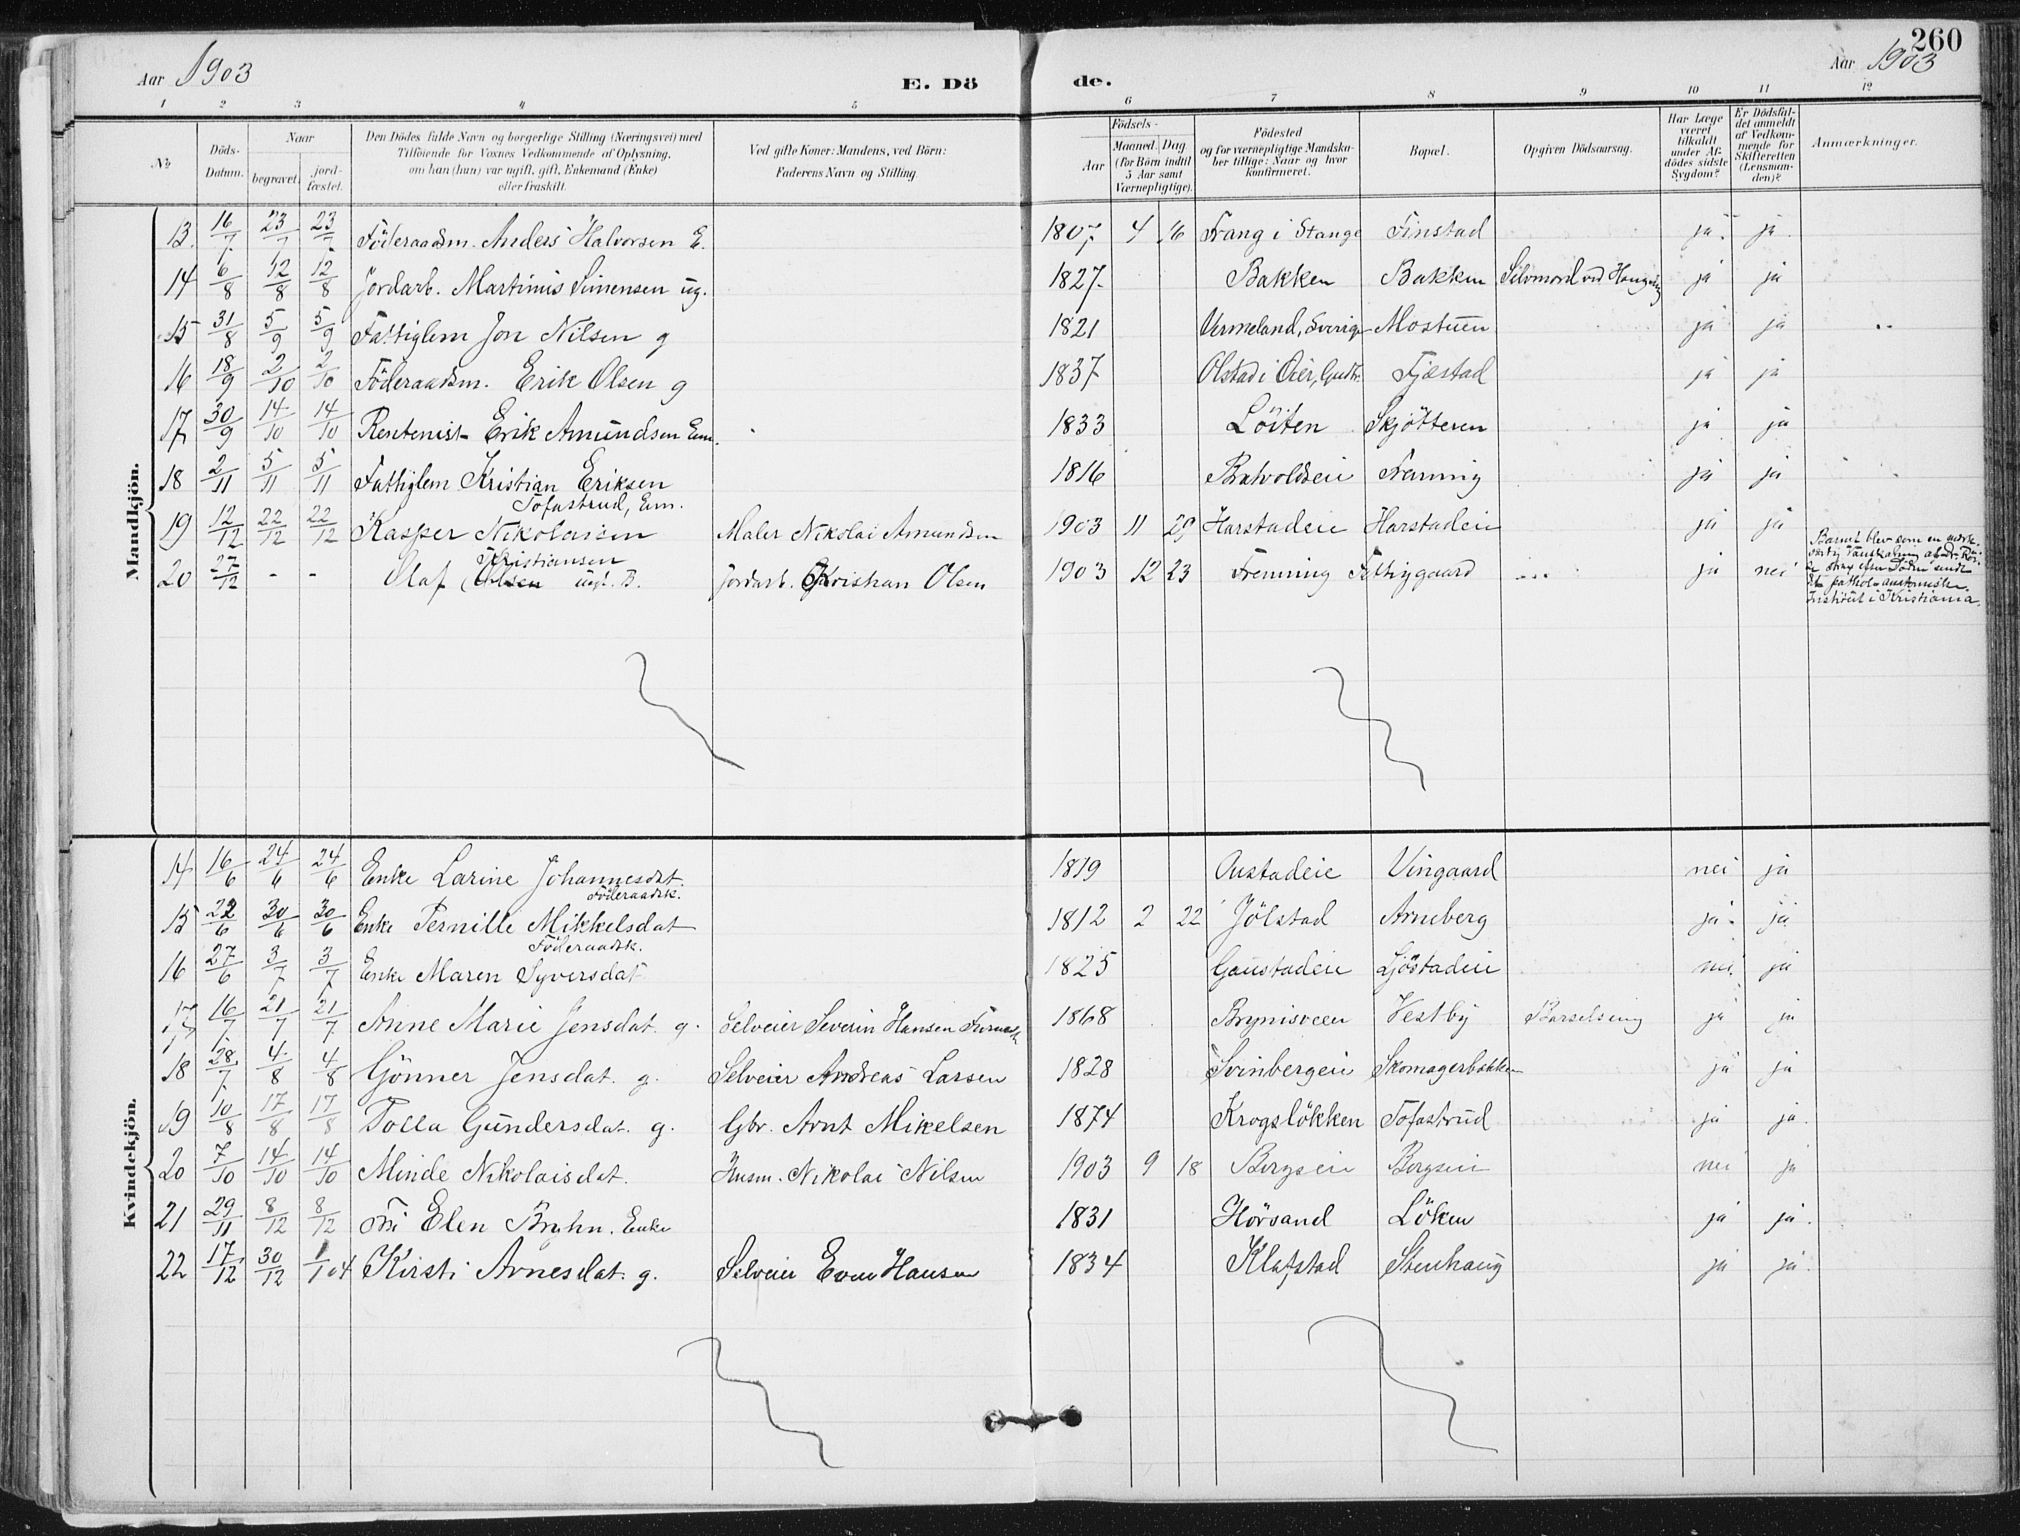 260
Aar 1903
E. Dö de.
Aar 1903
1 2 3 4 5 6 7 8 9 10 11 12
No
Döds-Datum.
Naar
begravet.
jordfæstet.
Den Dödes fulde Navn og borgerlige Stilling (Næringsvei) med
Tilföiende for Voxnes Vedkommende af Oplysning,
om han (hun) var ugift, gift, Enkemand (Enke)
eller fraskilt.
Ved gifte Koner: Mandens, ved Börn:
Faderens Navn og Stilling.
Födsels-
Aar
Maaned. Dag.
(for Börn indtil
5 Aar samt
Værnepligtige).
Födested
og for værnepligtige Mandska-
ber tillige: Naar og hvor
konfirmeret.
Bopæl.
Opgiven Dödsaarsag.
Har Læge
været
tilkaldt
under Af-
dödes sidste
Sygdom?
Er Dödsfal-
det anmeldt
af Vedkom-
mende for
Skifteretten
(Lensman-
den)?
Anmærkninger.
Mandkjön.
13. 16/7 23/7 23/7 Föderaadsm. Anders Halvorsen E. 1807 4 16 Vang i Stange Finstad ja. ja.
14 6/8 12/8 12/8 Jordarb. Martinius Simensen ug. 1827 Bakken Bakken Selvmord ved Hængning ja ja
15 31/8 5/9 5/9 Fattiglem Jon Nilsen g 1821 Vermeland, Sverige Mostuen ja ja
16 18/9 2/10 2/10 Föderaadsm. Erik Olsen g 1837 Olstad i Öier, Gudbr. Fjæstad ja ja
17 30/9 14/10 14/10 Rentenist Erik Amundsen Em. 1833 Löiten Skjötteren ja ja
18 2/11 5/11 5/11 Fattiglem Kristian Eriksen 1816 Fremming ja ja
Tofastrud, Em.
19 12/12 22/12 22/12 Kasper Nikolaisen Maler Nikolai Amundsen 1903 11 29 Harstadeie Harstadeie ja ja
Kristiansen
20 27/12 - - Olaf Olsen ugt. B. Jordarb. Kristian Olsen 1903 12 23 Fremming Fattiggaard ja nei
Barnet blev som en mærk-
efter Döden sendt
pathol-anatomiske
Institut i Kristiania.
Kvindekjön.
14 16/6 24/6 24/6 Enke Larine Johannesdat. 1819 Austadeie Vingaard nei ja
Föderaadsk.
15 22/6 30/6 30/6 Enke Pernille Mikkelsdat 1812 2 22 Jölstad Arneberg ja. ja
Föderaadsk.
16 27/6 3/7 3/7 Enke Maren Syversdat 1825 Gaustadeie Ljöstadeie nei ja
17 16/7 21/7 21/7 Anne Marie Jensdat. g. Selveier Severin Hansen 1868 Brynisveen Vestby Barselseng ja ja
18 28/7 4/8 4/8 Gönner Jensdat. g. Selveier Andreas Larsen 1828 Svinbergeie Skomagerbakken ja ja
19 10/8 17/8 17/8 Polla Gundersdat. g. Gbr. Arnt Mikelsen 1874 Krogslökken Tofastrud ja ja.
20 7/10 14/10 14/10 Minde Nikolaisdat. Husm. Nikolai Nilsen 1903 9 18 Bergseie Bergseie nei ja
21 29/11 8/12 8/12 Fru Elen Bryhn. Enke 1831 Hörsand Löken ja ja.
22 17/12 30/12 1/1 04 Kirsti Arnesdat. g. Selveier Even Hansen 1834 Klafstad Stenhaug ja ja.